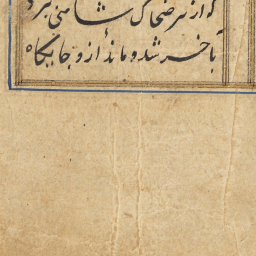 کز از سر ضحاک شاهی ببرد
بآخر شد و ماند ازو جایگاه